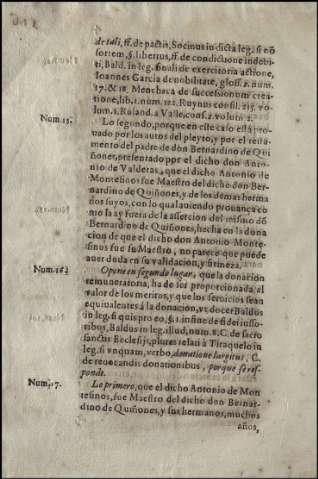 de tali, ff. de pactis, Socinus in dicta leg. si cõ
sortem, §. libertus, ff. de condictione indebi
ti, Bald. in leg. finali de exercitoria actione,
Ioannes Garcia de nobilitate, gloss. 2. num.
17. & 18. Menchaca de successionum crea-
tione, lib. 1. num. 121. Ruynus consil. 215. vo
lum. 1. Roland. a Valle, cons. 2. volum. 2.
Num. 15.
Lo segundo, porque en este caso està pro
uado por los autos del pleyto, y por el testa
mento del padre de don Bernardino de Qui
ñones, presentado por el dicho don Anto-
nio de Valderas, que el dicho Antonio de
Montesinos fue Maestro del dicho don Ber-
nardino de Quiñones, y de los demas herma
ños suyos, con lo qual auiendo prouança co
mo la ay fuera de la assercion del mismo dõ
Bernardino de Quiñones, hecha en la dona
cion de que el dicho don Antonio Monte-
sinos fue su Maestro, no parece que puede
auer duda en su validacion, y firmeza.
Num. 16.
Opone en segundo lugar, que la donacion
remuneratoria, ha de ser proporcionada al
valor de los meritos, y que los seruicios sean
equiualentes à la donacion, vt docet Baldus
in leg. si quis pro eo, §. 1. in fine de fideiusso-
ribus, Baldus in leg. illud, num. 8. C. de sacro
sanctis Ecclesijs, plures relati à Tiraquelo in
leg. si vnquam, verbo, donatione largitus, C.
de reuocandis donationibus, porque se res-
ponde.
Num. 17.
Lo primero, que el dicho Antonio de Mon
tesinos, fue Maestro del dicho don Bernar-
dino de Quiñones, y sus hermanos, muchos
años,